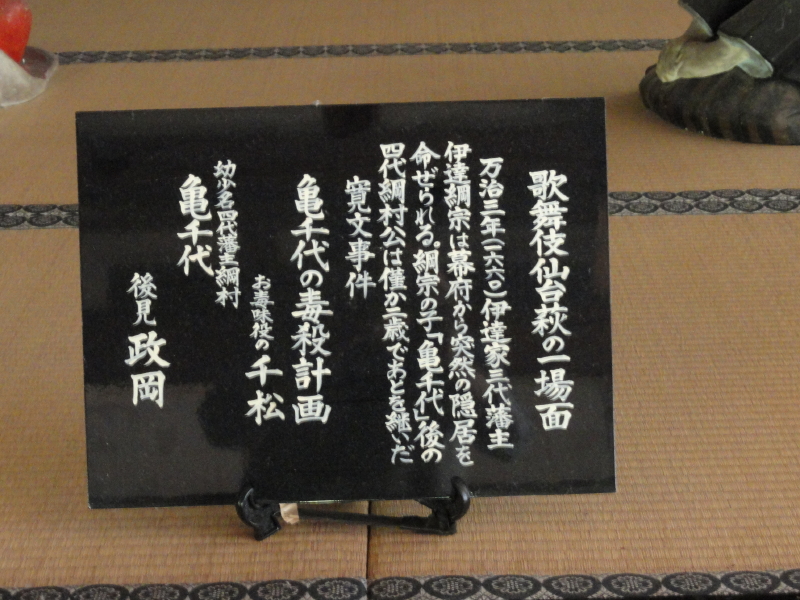 歌舞伎仙台萩の一場面
万治三年(一六六〇)伊達家三代藩主
伊達綱宗は幕府から突然の隠居を
命ぜられる。綱宗の子「亀千代」後の
四代綱村公は僅か二歳であとを継いだ
寛文事件
亀千代の毒殺計画
お毒味役の 千松
幼少名四代藩主綱村
亀千代
後見 政岡